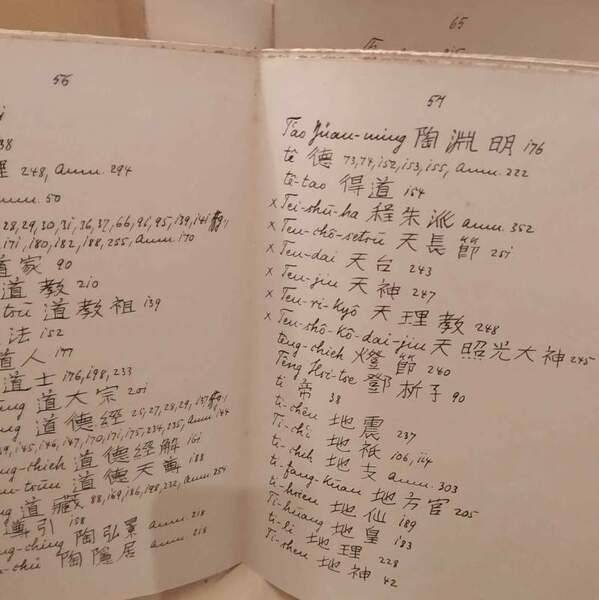 56
38
理 248, Anm. 294
Anm. 50
28, 29, 30, 31, 36, 37, 66, 96, 95, 139, 141
171, 180, 182, 188, 255, Anm. 170
道家 90
道教 210
道教祖 139
法 152
道人 177
道士 176, 198, 233
道大宗 201
道德經 26, 27, 28, 29, 137
145, 146, 147, 170, 171, 175, 234, 235, Anm. 144
道德經解 161
道德天尊 188
道藏 88, 169, 186, 198, 232, Anm. 254
導引 158
陶弘景 Anm. 218
陶隱居 Anm. 218
65
57
Tao Yüan-ming 陶淵明 176
tê 德 73, 74, 152, 153, 155, Anm. 222
tê-tao 得道 154
x Tei-shū-ha 程朱派 Anm. 352
x Ten-chō-setsu 天長節 251
x Ten-dai 天台 243
x Ten-jin 天神 247
x Ten-ri-kyō 天理教 248
x Ten-shō-kō-dai-jin 天照光大神 245
têng-chieh 燈節 240
Têng Hsi-tse 鄧析子 90
ti 帝 38
ti-chên 地震 237
Ti-ch'i 地祇 106, 114
ti-chih 地支 Anm. 303
ti-fang-kuan 地方官 205
ti-hsien 地仙 189
Ti-huang 地皇 183
ti-li 地理 228
Ti-shen 地神 42